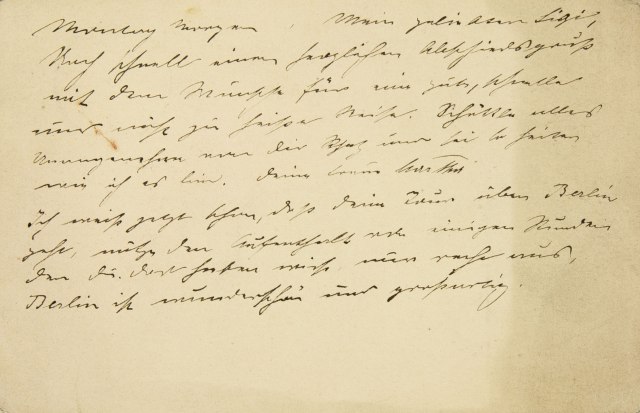 Montag Morgen Mein geliebter Sigi,
Noch schnell einen herzlichen Abschiedsgruß
mit dem Wunsche für eine gute, schnelle
und nicht zu heiße Reise. Schüttle alles
Unangenehme von dir Schatz und sei so heiter
wie ich es bin. Deine treue Martha
Ich weiß jetzt schon, daß deine Tour über Berlin
geht, nütze den Aufenthalt von einigen Stunden
den du dort haben wirst, nur recht aus,
Berlin ist wunderschön und großartig.